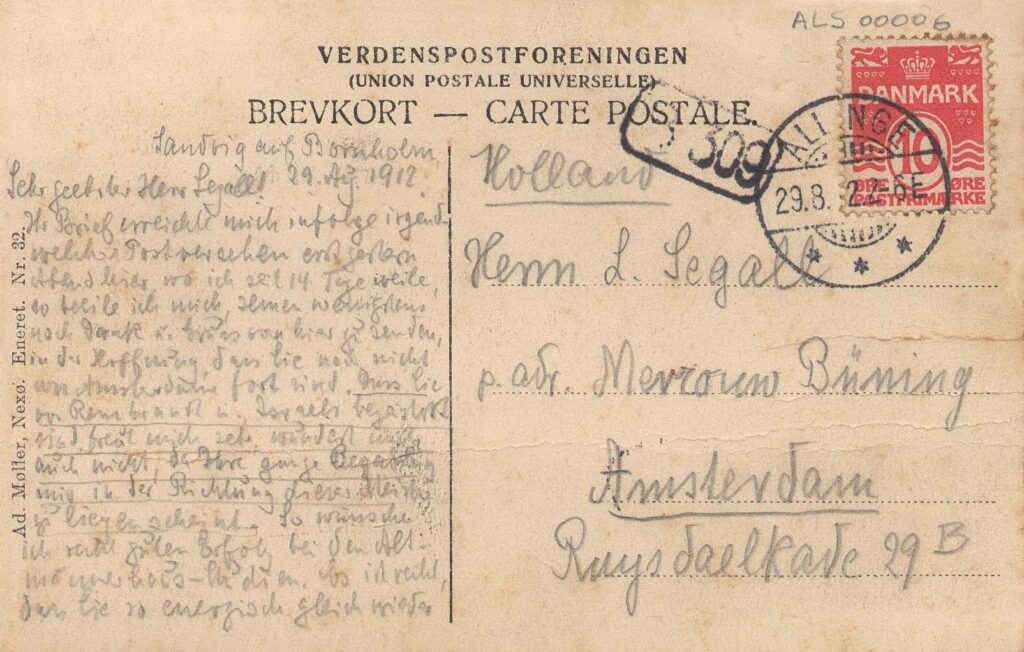 ALS 00006
VERDENSPOSTFORENINGEN
(UNION POSTALE UNIVERSELLE)
BREVKORT — CARTE POSTALE.
DANMARK
10
ØRE ØRE
POSTFRIMÆRKE
309
ALLINGE
29.8. 12.2-6E
Sandvig auf Bornholm,
29. Aug. 1912.
Sehr geehrter Herr Segall!
Ihr Brief erreichte mich infolge irgend
welcher Postversehen erst gestern
Abend hier, wo ich seit 14 Tage weile,
so beeile ich mich, Ihnen wenigstens
noch Dank u. Gruss von hier zu senden,
in der Hoffnung, dass Sie noch nicht
von Amsterdam fort sind. Dass Sie
von Rembrandt u. Israels begeistert
sind freut mich sehr, wundert mich
auch nicht, da Ihre ganze Begabung
mir in der Richtung dieser Meister
zu liegen scheint. So wünsche
ich recht guten Erfolg bei den Alt-
männerhaus-Studien. Es ist recht,
dass Sie so energisch gleich wieder
Holland
Herrn L. Segall
p. adr. Merrouw Büning
Amsterdam
Ruysdaelkade 29 B
Ad. Møller, Nexø. Eneret. Nr. 32.